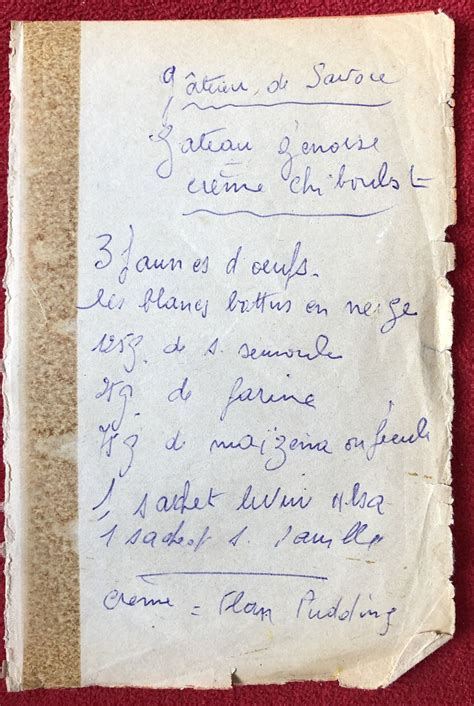 gâteau de Savoie
Gateau génoise
crème chiboust
3 jaunes d'oeufs.
les blancs battus en neige
125g. de s. semoule
25g. de farine
75g de maïzena ou fécule
1 sachet levure Alsa
1 sachet s. vanille
creme = Flan Pudding